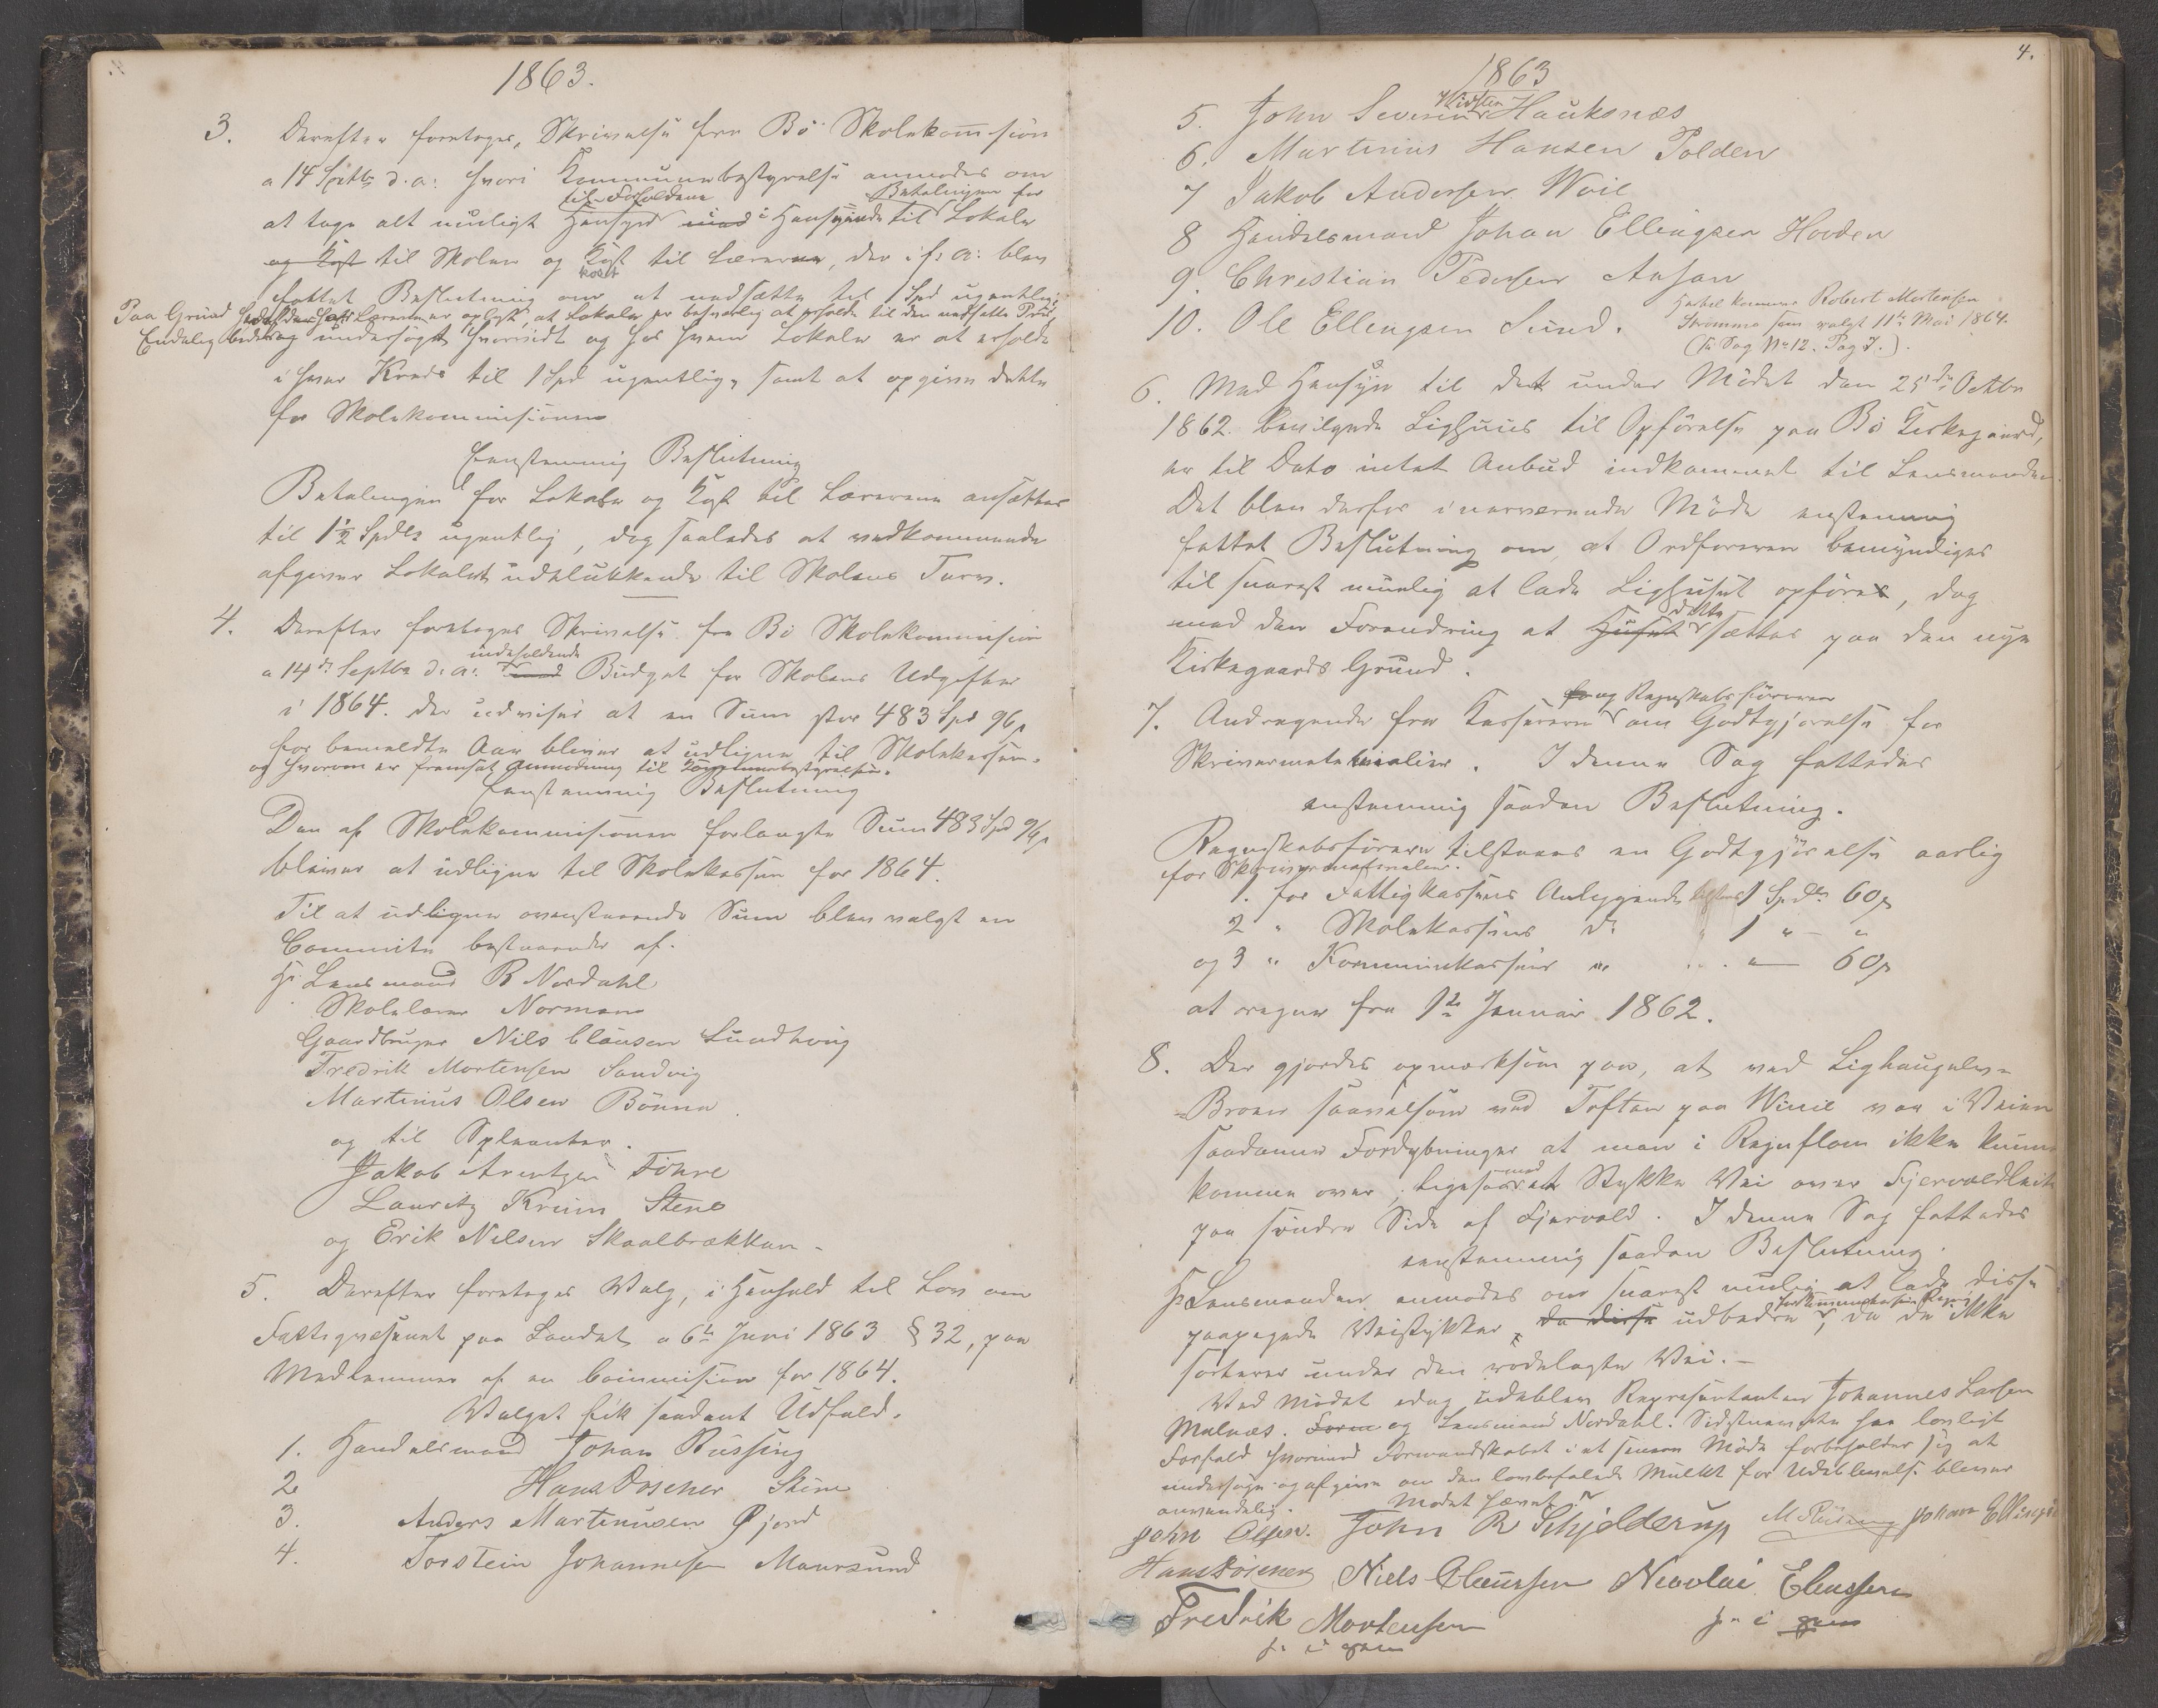 1863.
3. Derefter foretoges, Skrivelse fra Bö Skolekommision
a 14 Septbr d. a: hvori Kommunebestyrelse anmodes om
til Forholdene Betalingen for
at tage alt muligt Hensyn med i Hensyende til Lokaler
og Kost til Skolen og Kost til Lærerne, der i f: A: blev
kost
fattet Beslutning om at nedsætte til 1 Spd ugentlig.
Paa Grund heraf Lærerne er oplyst, at Lokaler er besværlig at erholde til den nedsatte Priis,
Endelig bedes undersøgt hvorvidt og hos hvem Lokaler er at erholde
i hver Kreds til 1 Spd ugentlig, samt at opgive dette
for Skolekommisionen
Eenstemmig Beslutning
Betalingen for Lokale og Kost til Lærerne ansættes
til 1½ Spdlr ugentlig, dog saaledes at vedkommende
afgiver Lokalet udelukkende til Skolens Tarv.
4. Derefter foretoges Skrivelse fra Bö Skolekommision
indeholdende
a 14de Septbr d. a: med Budget for Skolens Udgifter
i 1864. der udviser at en Sum stor 483 Spd 96 s
for bemeldte Aar bliver at udligne til Skolekassen.
og hvorom er fremsat Anmodning til Kommunebestyrelsen.
Eenstemmig Beslutning
Den af Skolekommisionen forlangte Sum 483 Spd 96 s
bliver at udligne til Skolekassen for 1864.
Til at udligne ovenstaaende Sum blev valgt en
Committe bestaaende af.
Hr Lensmand B Nordahl
Skolelærer Normann
Gaardbruger Nils Clausen Sundhvig
Fredrik Mortensen Sandvig
Martinus Olsen Bönna.
og til Supleanter.
Jakob Arentzen Föhre
Lauritz Kruin Stene
og Erik Nilsen Skaalbrækken.
5. Derefter foretoges Valg, i Henhold til Lov om
Fattigvæsenet paa Landet a 6te Juni 1863 § 32, paa
Medlemmer af en Commision for 1864.
Valget fik saadant Udfald.
1. Handelsmand Johan Rüssing
2 Hans Doscher Skine
3. Anders Martinusen Øjord
4. Torstein Johannesen Maursund
4.
1863
5. John Severin Hauksnæs
6. Martinus Hansen Polden
7 Jakob Andersen Veie
8 Handelsmand Johan Ellingsen Hovden
9. Christian Pedersen Aasan
10. Ole Ellengsen Sund. Robert Mortensen
Strømme som valgt 11te Mai 1864.
(Se Sag No 12. Pag 7.).
6. Med Hensyn til det under Mödet den 25de Octbr
1862. bevilgede Lighuus til Opförelse paa Bö Kirkegaard,
er til Dato intet Anbud indkommet til Lensmanden.
Det blev derfor i nærværende Möde enstemmig
fattet Beslutning om at Ordföreren bemyndiges
til snarest muelig at lade Lighuset opföres, dog
dette
med den Forandring at Huset sættes paa den nye
Kirkegaards Grund.
og Regnskabsföreren
7. Andragende fra Kassereren om Godtgjørelse for
Skrivermaterialier. I denne Sag fattedes
enstemmig saadan Beslutning.
Regnskabsförere tilstaaes en Godtgjörelse aarlig
for Skrivermaterialier.
1. for Fattigkassens Anleggende 1 Spdlr 60 s
2 " Skolekassens do " 1 " — "
og 3 " Kommunekassens " . . . " — 60 s
at regne fra 1te Januar 1862.
8. Der gjordes opmærksom paa, at ved Lighaugelv-
-Broen saavelsom ved Toften paa Winie var i Veien
saadanne Fordybninger at man i Regnflom ikke kunne
med
komme over, ligesaa et Stykke Vei over Fjervoldleite
paa söndre Side af Fjervold. I denne Sag fattedes
eenstemmig saadan Beslutning.
Hr Lensmanden anmodes om snarest mulig at lade disse
paapegede Veistykker, da disse udbedre, da de ikke
sorterer under den rodelagte Vei. —
Ved Mödet idag udeblev Repræsentanten Johannes Larsen
Malnæs. Form og Lensmand Nordahl. Sidstnævnte har lovligt
Forfald hvorimod Formandskabet i et senere Möde forbeholder sig at
undersøge og afgive om den lovbefalede Mulkt for Udeblivelse bliver
anvendelig. Mødet hævet.
John Olsen. John R Schjelderup M Rüssing Johan Ellingsen
Hans Döscher Niels Claussen Nicolai Eliassen
Fredrik Mortensen